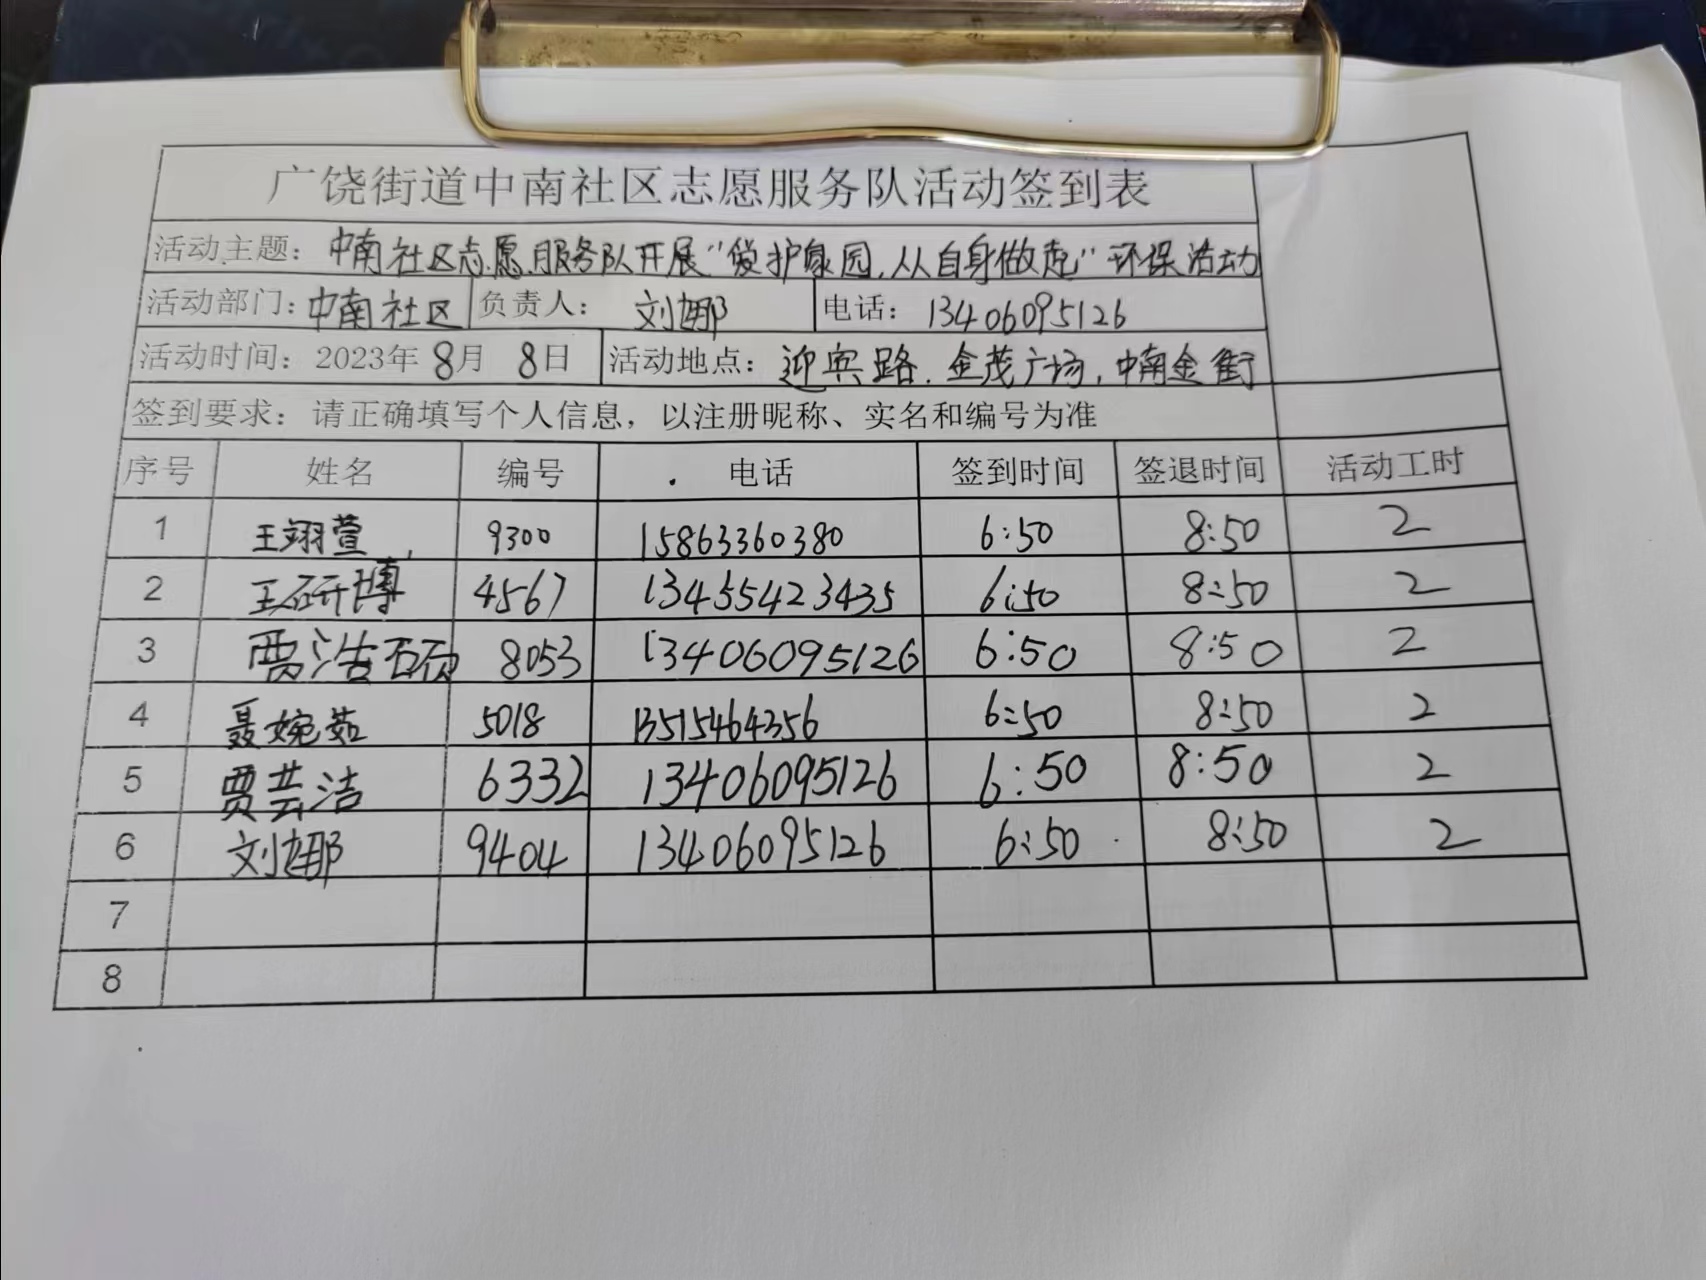 广饶街道中南社区志愿服务队活动签到表
活动主题：中南社区志愿服务队开展“爱护家园，从自身做起”环保活动
活动部门：中南社区 负责人：刘娜 电话：13406095126
活动时间：2023年8月8日 活动地点：迎宾路．金茂广场，中南金街
签到要求：请正确填写个人信息，以注册昵称、实名和编号为准
序号 姓名 编号 电话 签到时间 签退时间 活动工时
1 王翊萱 9300 15863360380 6:50 8:50 2
2 王研博 4567 13455423435 6:50 8:50 2
3 贾浩硕 8053 13406095126 6:50 8:50 2
4 聂婉茹 5018 13515464356 6:50 8:50 2
5 贾芸洁 6332 13406095126 6:50 8:50 2
6 刘娜 9404 13406095126 6:50 8:50 2
7
8